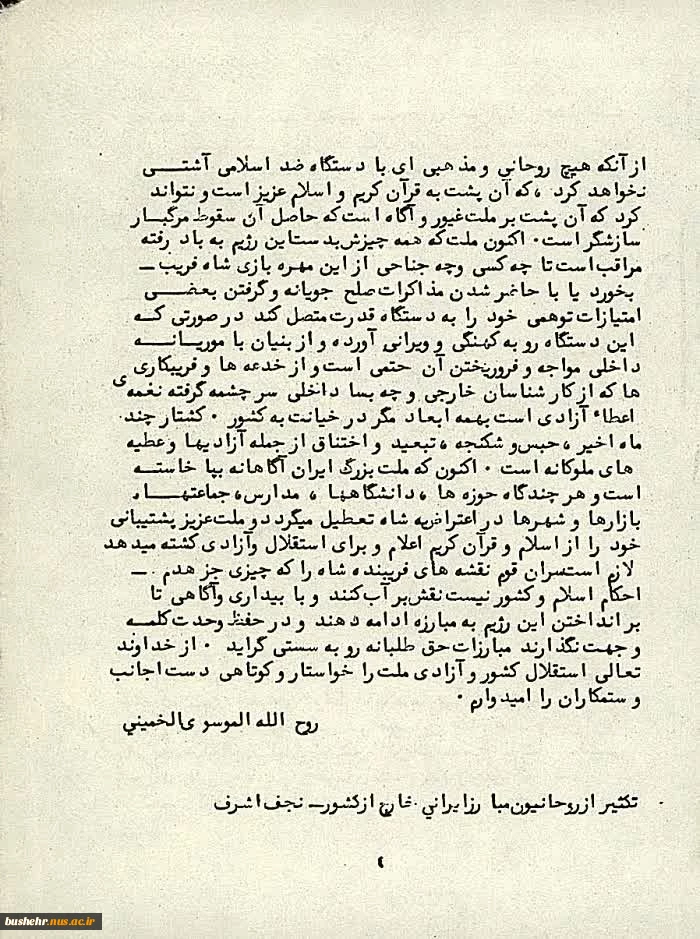 از آنکه هیچ روحانی و مذهبی ای با دستگاه ضد اسلامی آشتـــی
نخواهد کرد ، که آن پشت به قرآن کریم و اسلام عزیز است و نتواند
کرد که آن پشت بر ملت غیور و آگاه است که حاصل آن سقوط مرگبـار
سازشگر است . اکنون ملت که همه چیزش بدست این رژیم به باد رفته
مراقب است تا چه کسی و چه جناحی از این مهره بازی شاه فریب ـ
بخورد یا با حاضر شدن مذاکرات صلح جویانه و گرفتن بعضــی
امتیازات توهمی خود را به دستگاه قدرت متصل کند در صورتی کـه
این دستگاه رو به کهنگی و ویرانی آورده و از بنیان با موریانـــه
داخلی مواجه و فروریختن آن حتمی است و از خدعه ها و فریبکاری
ها که از کارشناسان خارجی و چه بسا داخلی سرچشمه گرفته نغمه‌ی
اعطاء آزادی است بهمه ابعاد مگر در خیانت به کشور . کشتار چند
ماه اخیر ، حبس و شکنجه ، تبعید و اختناق از جمله آزادیها و عطیه
های ملوکانه است . اکنون که ملت بزرگ ایران آگاهانه بپا خاستـه
است و هر چندگاه حوزه ها ، دانشگاهها ، مدارس ، جماعتهـا ،
بازارها و شهرها در اعتراض به شاه تعطیل میگردد و ملت عزیز پشتیبانی
خود را از اسلام و قرآن کریم اعلام و برای استقلال و آزادی کشته میدهد
لازم است سران قوم نقشه های فریبنده شاه را که چیزی جز هدم ـ
احکام اسلام و کشور نیست نقش بر آب کنند و با بیداری و آگاهی تا
برانداختن این رژیم به مبارزه ادامه دهند و در حفظ وحدت کلمـه
و جهت نگذارند مبارزات حق طلبانه رو به سستی گراید . از خداوند
تعالی استقلال کشور و آزادی ملت را خواستار و کوتاهی دست اجانب
و ستمکاران را امیدوارم .
روح الله الموسوی الخمیني
تکثیر از روحانیون مبارز ایرانی خارج از کشور ـ نجف اشرف
bushehr.nus.ac.ir